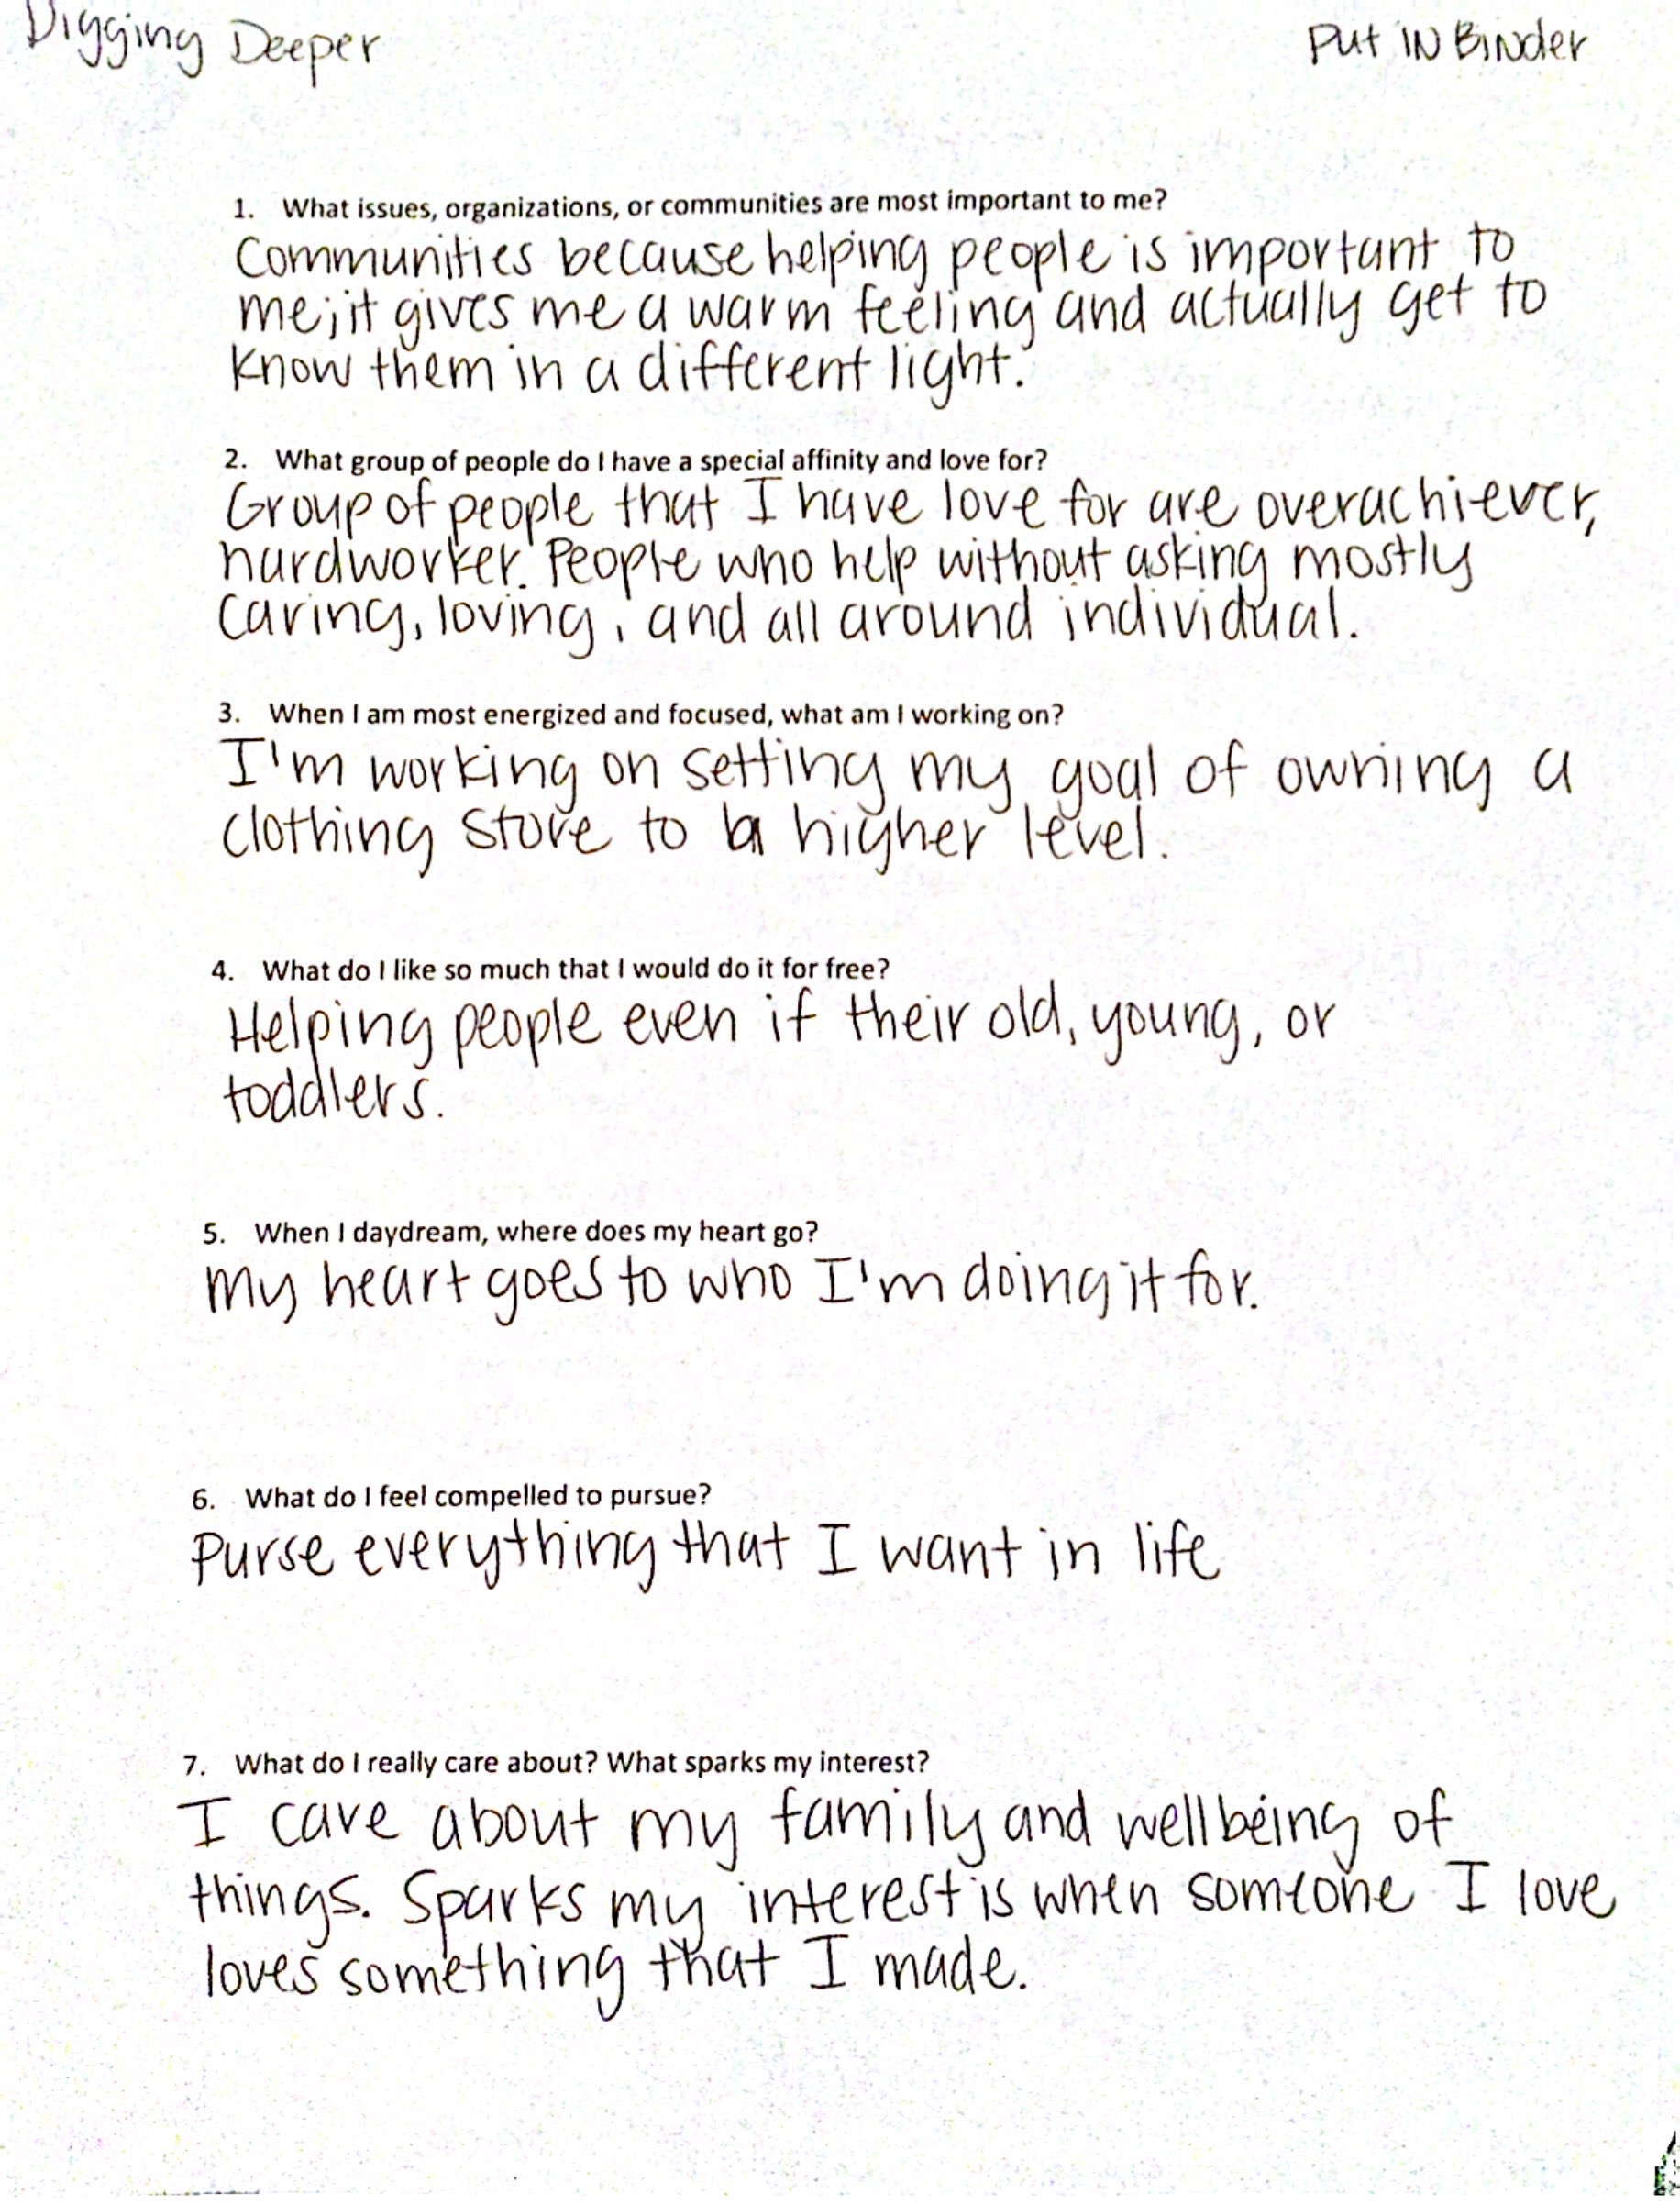 Digging Deeper
Put IN Binder
1. What issues, organizations, or communities are most important to me?
Communities because helping people is important to
me; it gives me a warm feeling and actually get to
know them in a different light.
2. What group of people do I have a special affinity and love for?
Group of people that I have love for are overachiever,
hardworker. People who help without asking mostly
caring, loving, and all around individual.
3. When I am most energized and focused, what am I working on?
I'm working on setting my goal of owning a
clothing store to a higher level.
4. What do I like so much that I would do it for free?
Helping people even if their old, young, or
toddlers.
5. When I daydream, where does my heart go?
My heart goes to who I'm doing it for.
6. What do I feel compelled to pursue?
Purse everything that I want in life
7. What do I really care about? What sparks my interest?
I care about my family and wellbeing of
things. Sparks my interest is when someone I love
loves something that I made.